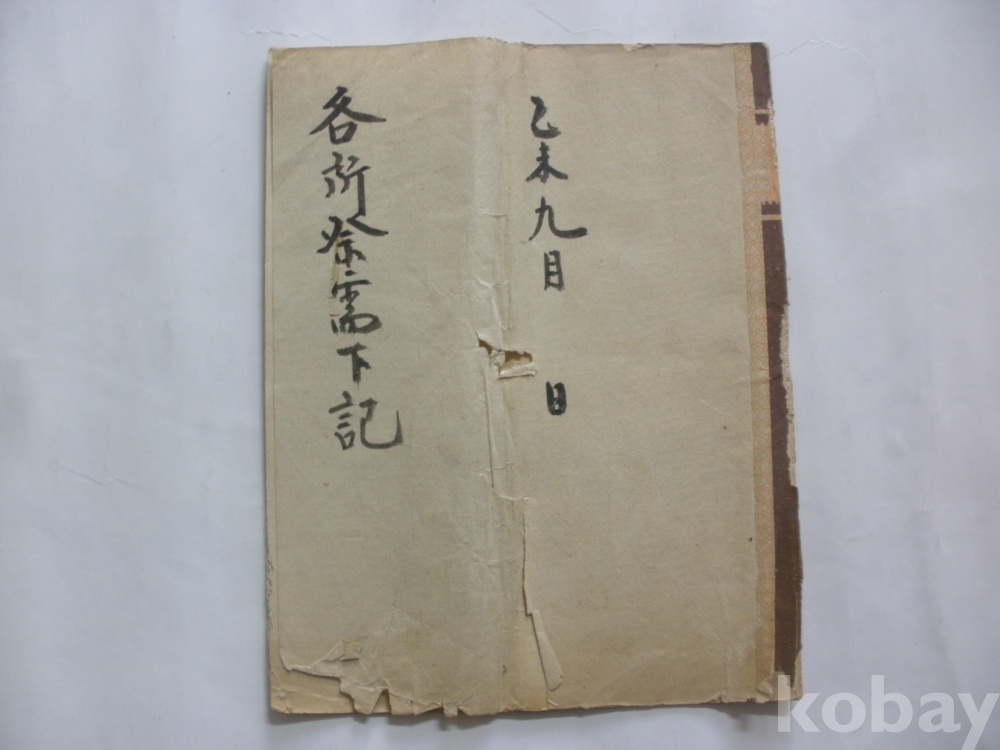 乙未九月 日
各所祭需下記
kobay